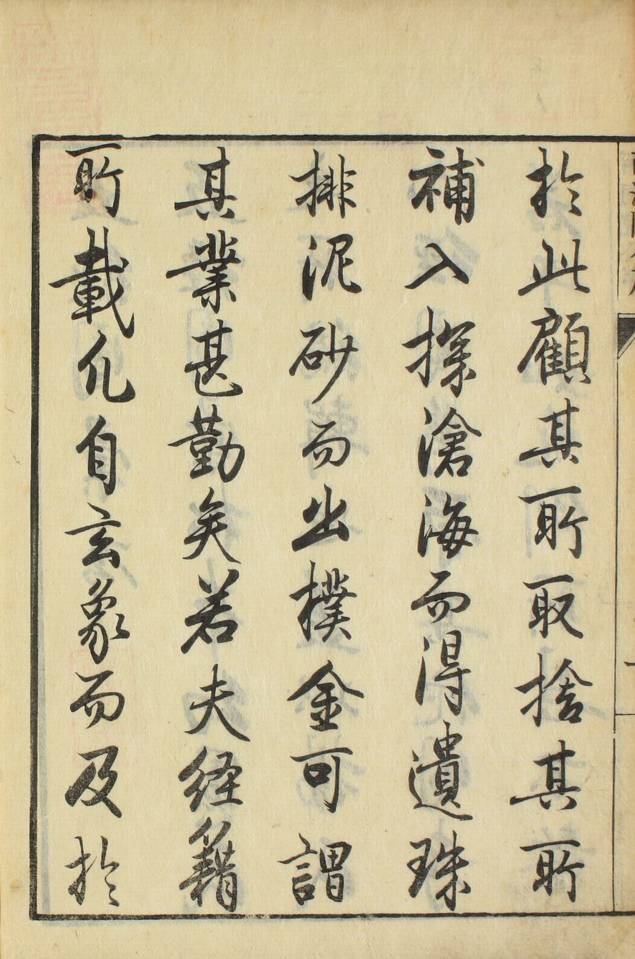 於此顧其所取捨其所
補入探滄海而得遺珠
排泥砂而出樸金可謂
其業甚勤矣若夫経籍
所載凡自玄象而及於